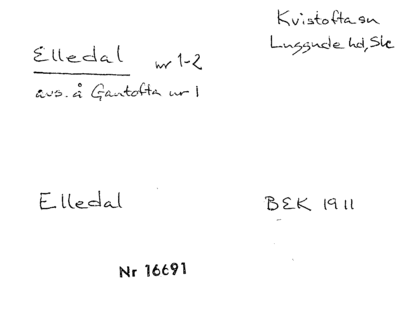 Kvistofta sn
Luggude hd, Sk
Elledal nr 1-2
avs. å Gantofta nr 1
Elledal BEK 1911
Nr 16691